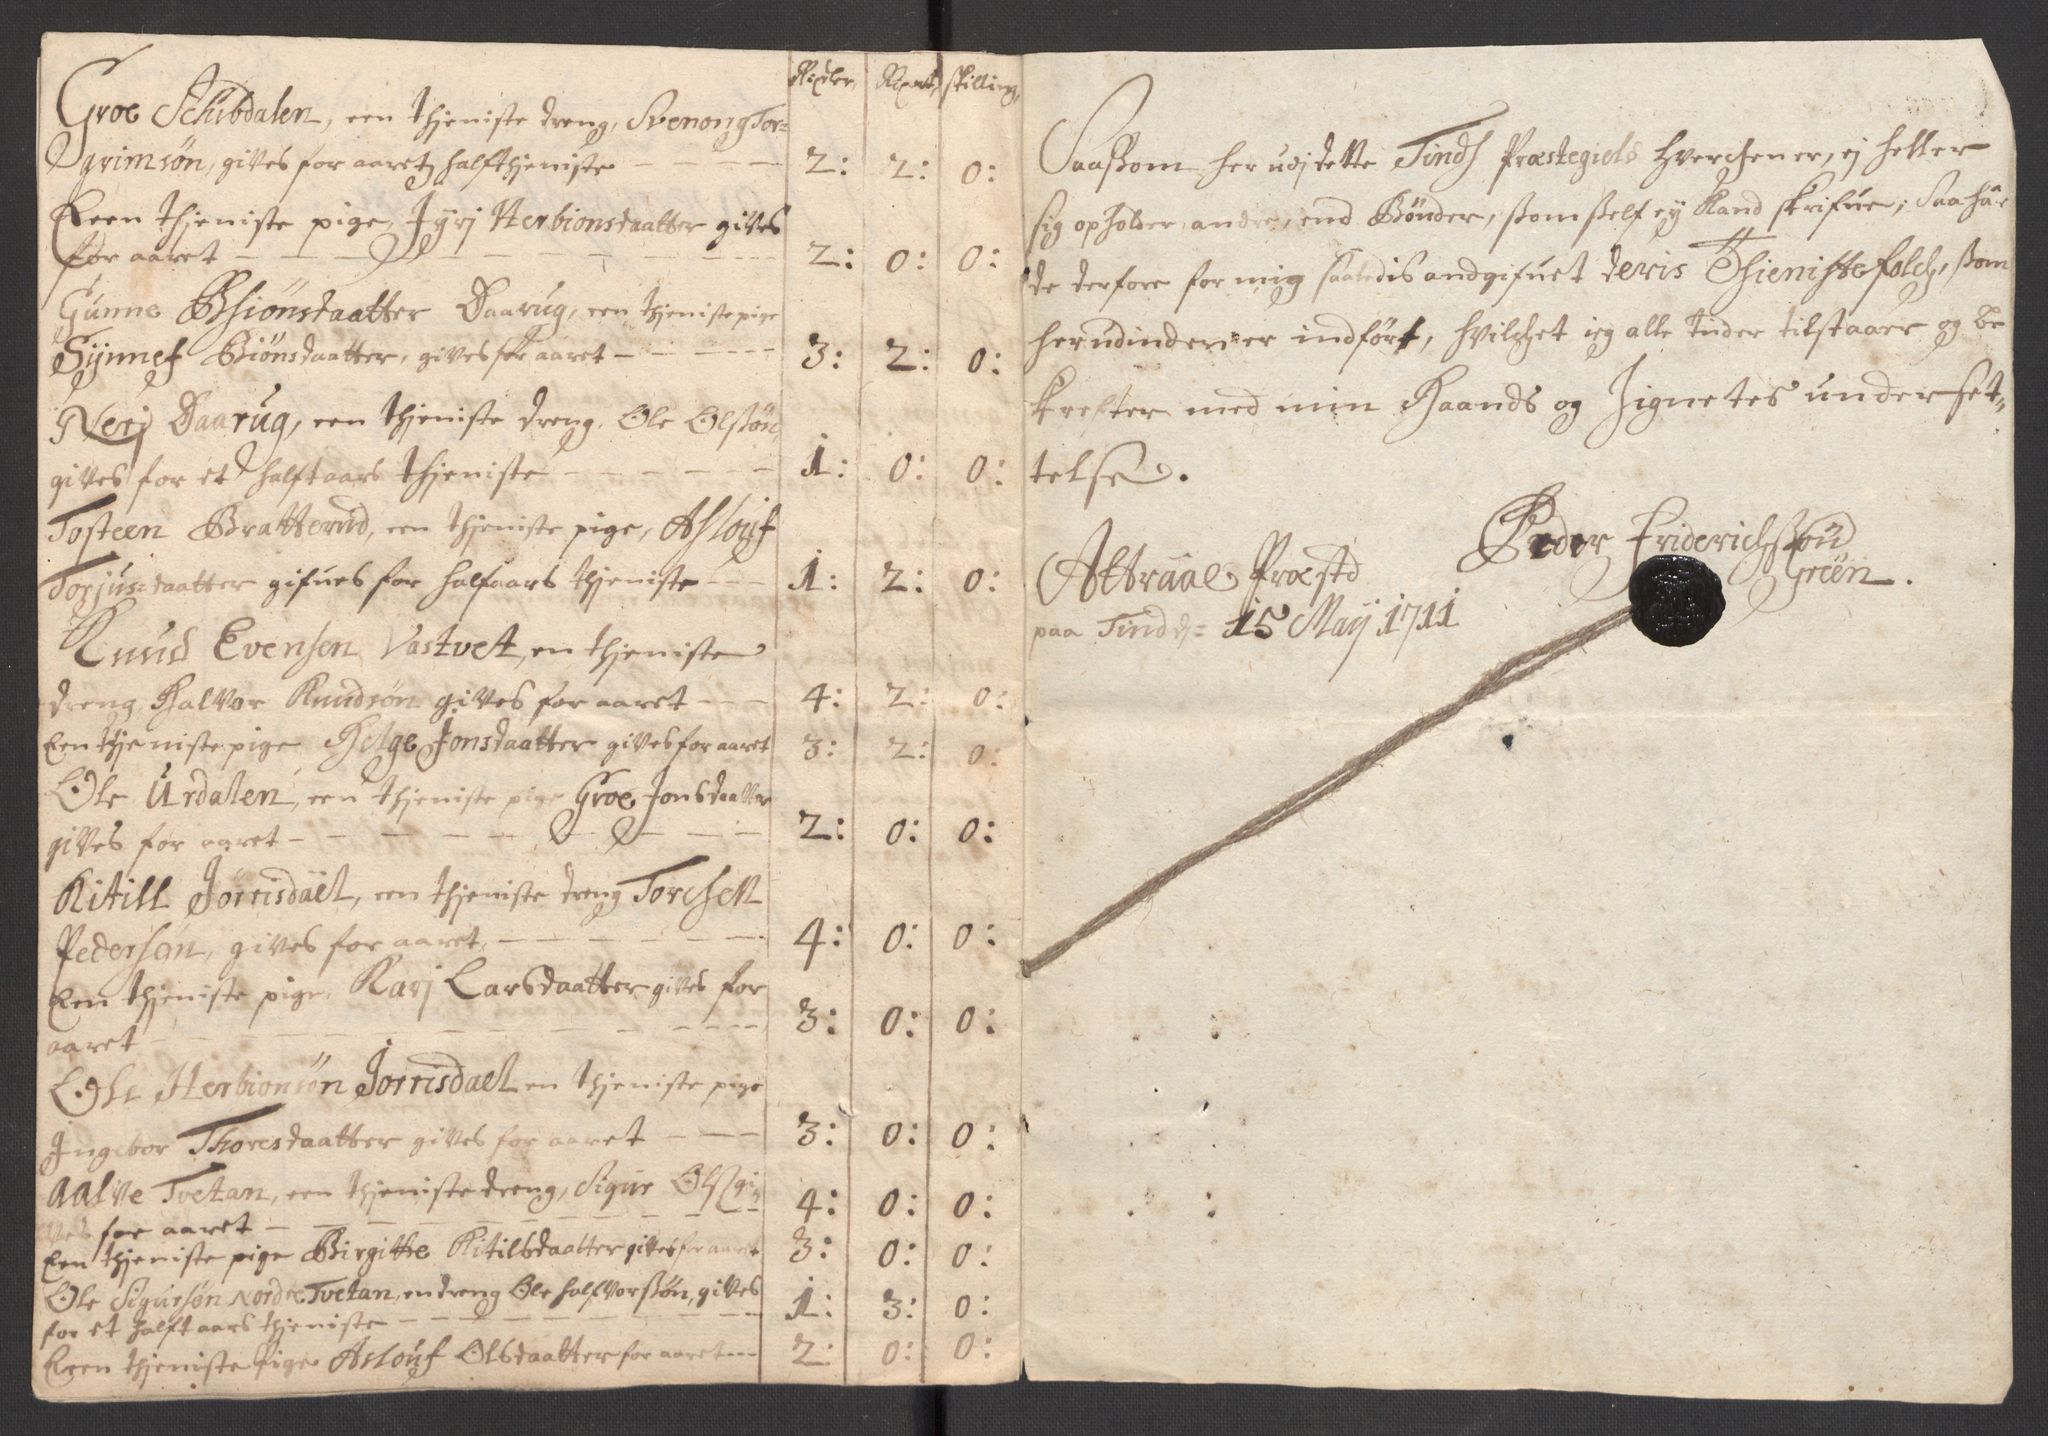 Rixdlr Rixort skilling
Groe Schibdalen, een thjeniste dreng, Svenong Tor=
grimsøn, gives for aaretz halfthjeniste 2: 2: 0:
Eeen thjeniste pige, Jyrj Herbionsdaatter gives
for aaret 2: 0: 0:
Gunne Bhiönsdaatter Daarug, een thjeniste pige
Synnef Biönsdaatter, gives for aaret 3: 2: 0:
Nerj Daarug, een thjeniste dreng, Ole Olssön
gives for et halft aars thjeniste 1: 0: 0:
Tosteen Bratterud, een thjeniste pige, Aslouf
Torjusdaatter gifues for halfaars thjeniste 1: 2: 0:
Knud Evensen Vastvet, en thjeniste
dreng, Halvor Knudsøn gives for aaret 4: 2: 0:
Een thjeniste pige Helge Jonsdaatter gives for aaret 3: 2: 0:
Ole Urdalen, een thjeniste pige Groe Jonsdaatter
gives for aaret 2: 0: 0:
Kitill Jorrisdael, een thjeniste dreng Torchell
Pedersøn, gives for aaret 4: 0: 0:
Een thjeniste pige, Karj Larsdaatter gives for
aaret 3: 0: 0:
Ole Herbionsøn Jorrisdael en thjeniste pige
Ingebor Thoresdaatter gives for aaret 3: 0: 0:
Aalve Tvetan, een thjeniste dreng, Sigur Ols: gi=
ves for aaret 4: 0: 0:
Een thjeniste pige Birgitte Kitilsdaatter gives for aaret 3: 0: 0:
Ole Sigursøn Nordre Tvetan, en dreng Ole Halfvorssøn, gives
for et halft aars thjeniste 1: 3: 0:
Eeen thjeniste Pige Aslouf Olsdaatter for aaret 2: 0: 0:
Saassom her udj dette Tinds Præstegields hverchen er, ej heller
sig opholder andre, end Bønder, som sself ey kand skrifue; Saa haf=
de derfore for mig saaledis andgifuet deris Thienistefolch, ssom
herudinden er indført, hvilchet ieg alle tider tilstaaer og be
krefter med min Haands og Signetes underset=
telse.
Attraae Præstd Peder Friderichssøn
Green.
paa Tind d: 15 Maij 1711